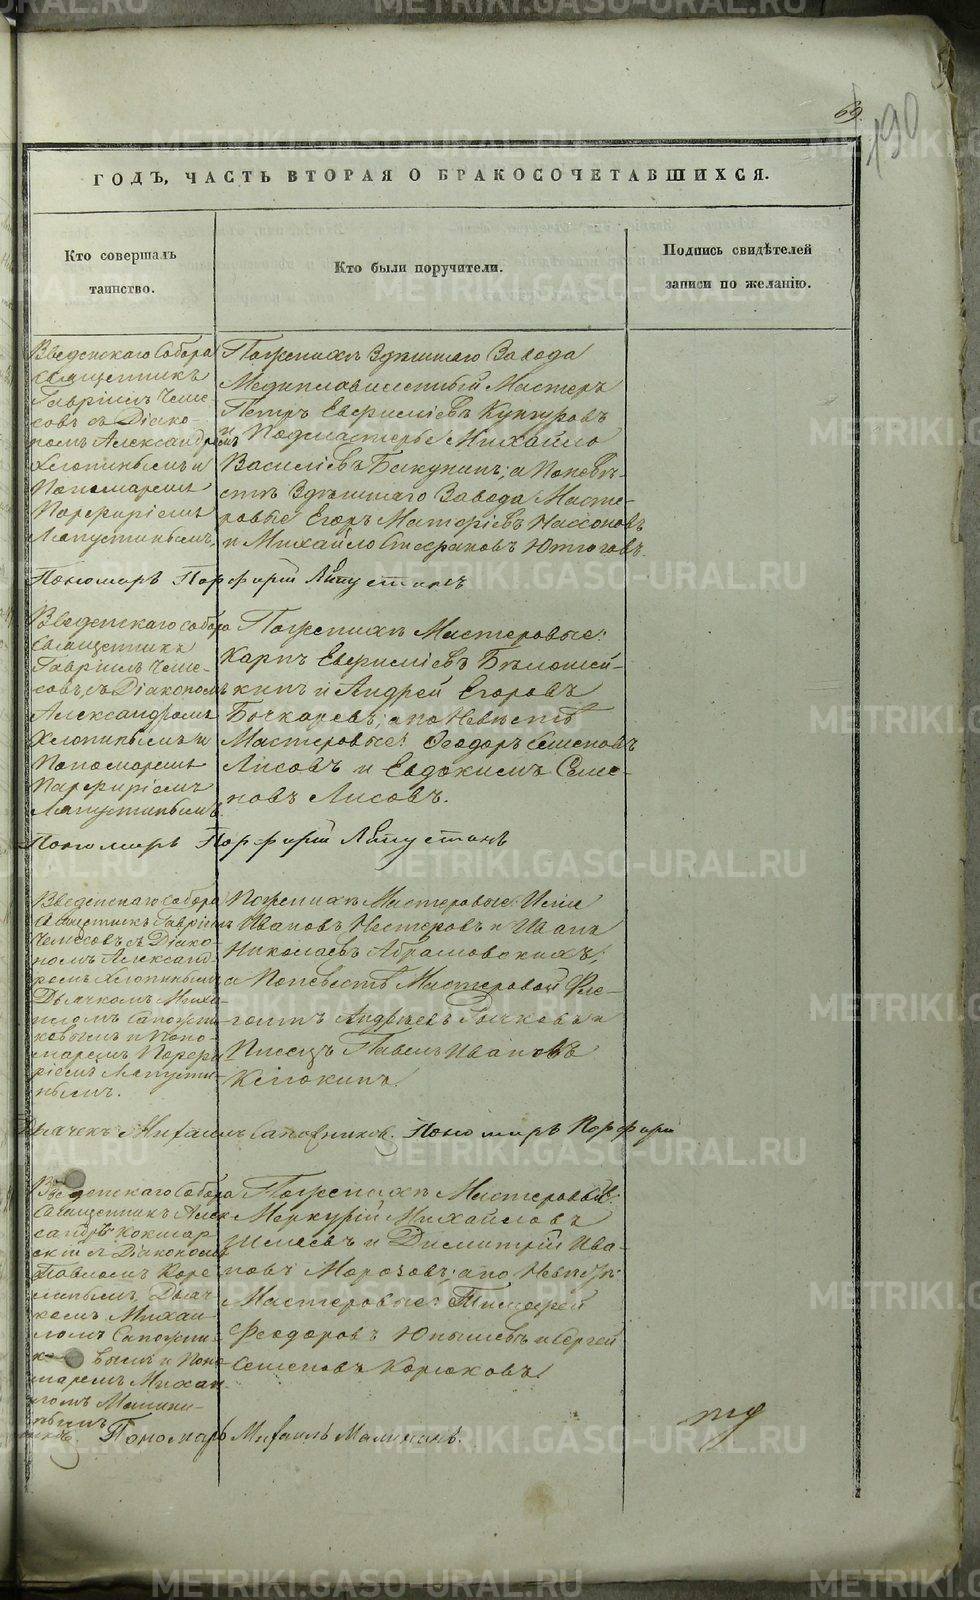 69.
190
ГОДЪ, ЧАСТЬ ВТОРАЯ О БРАКОСОЧЕТАВШИХСЯ.
Кто совершалъ
таинство.
Кто были поручители.
Подпись свидѣтелей
записи по желанію.
Введенскаго Собора
Священникъ
Гавріилъ Чеме-
совъ съ Діако-
номъ Александромъ
Хлопинымъ и
Пономаремъ
Порфиріемъ
Лапустинымъ,
По женихѣ Здѣшняго Завода
Медиплавиленный Мастеръ
Петръ Евфиміевъ Кунгуровъ
и Подмастерье Михайло
Василіевъ Бакунинъ; а по невѣ-
стѣ Здѣшняго Завода Масте-
ровые Егоръ
и Михайло Стефановъ Ютюговъ.
Пономарь Порфирій Лапустинъ
Введенскаго собора
Священникъ
Гавріилъ Чеме-
совъ съ Діакономъ
Александромъ
Хлопинымъ и
Пономаремъ
Парфиріемъ
Лапустинымъ
По женихѣ Мастеровые:
Карпъ Евфиміевъ Бѣлошей-
кинъ и Андрей Егоровъ
Бочкаревъ; а по Невѣстѣ
Мастеровые: Феодоръ Семеновъ
Лисовъ и Евдокимъ Семе-
новъ Лисовъ.
Пономарь Порфирій Лапустинъ
Введенскаго Собора
Священникъ Гавріилъ
Чемесовъ съ Діако-
номъ Александ-
ромъ Хлопинымъ
Дьячкомъ Миха-
иломъ Сапожни-
ковымъ и Поно-
маремъ Порфи-
ріемъ Лапусти-
нымъ.
По женихѣ Мастеровые:
Ивановъ Нестеровъ и Иванъ
Николаевъ Абрамовскихъ;
а По невѣстѣ Мастеровой Фле-
гонтъ Андреевъ Рычковъ и
Писецъ Павелъ Ивановъ
Дьячекъ Михаилъ Сапожниковъ. Пономарь Порфирій
Введенскаго Собора
Священникъ Алек
сандръ Кокшар
скій съ Діакономъ
Павломъ Коре
линымъ, Дьяч-
комъ Михаи
ломъ Сапожни-
ковымъ и Поно-
маремъ Михаи
ломъ Малини-
нымъ
По женихѣ Мастеровые:
Меркурій Михайловъ
Шмаевъ и Димитрій Ива-
новъ Морозовъ; а по Невѣстѣ:
Мастеровые: Тимофей
Феодоровъ Юнышевъ и Сергей
Семеновъ Корюковъ.
Пономарь Михаилъ Малининъ.
METRIKI.GASO-URAL.RU